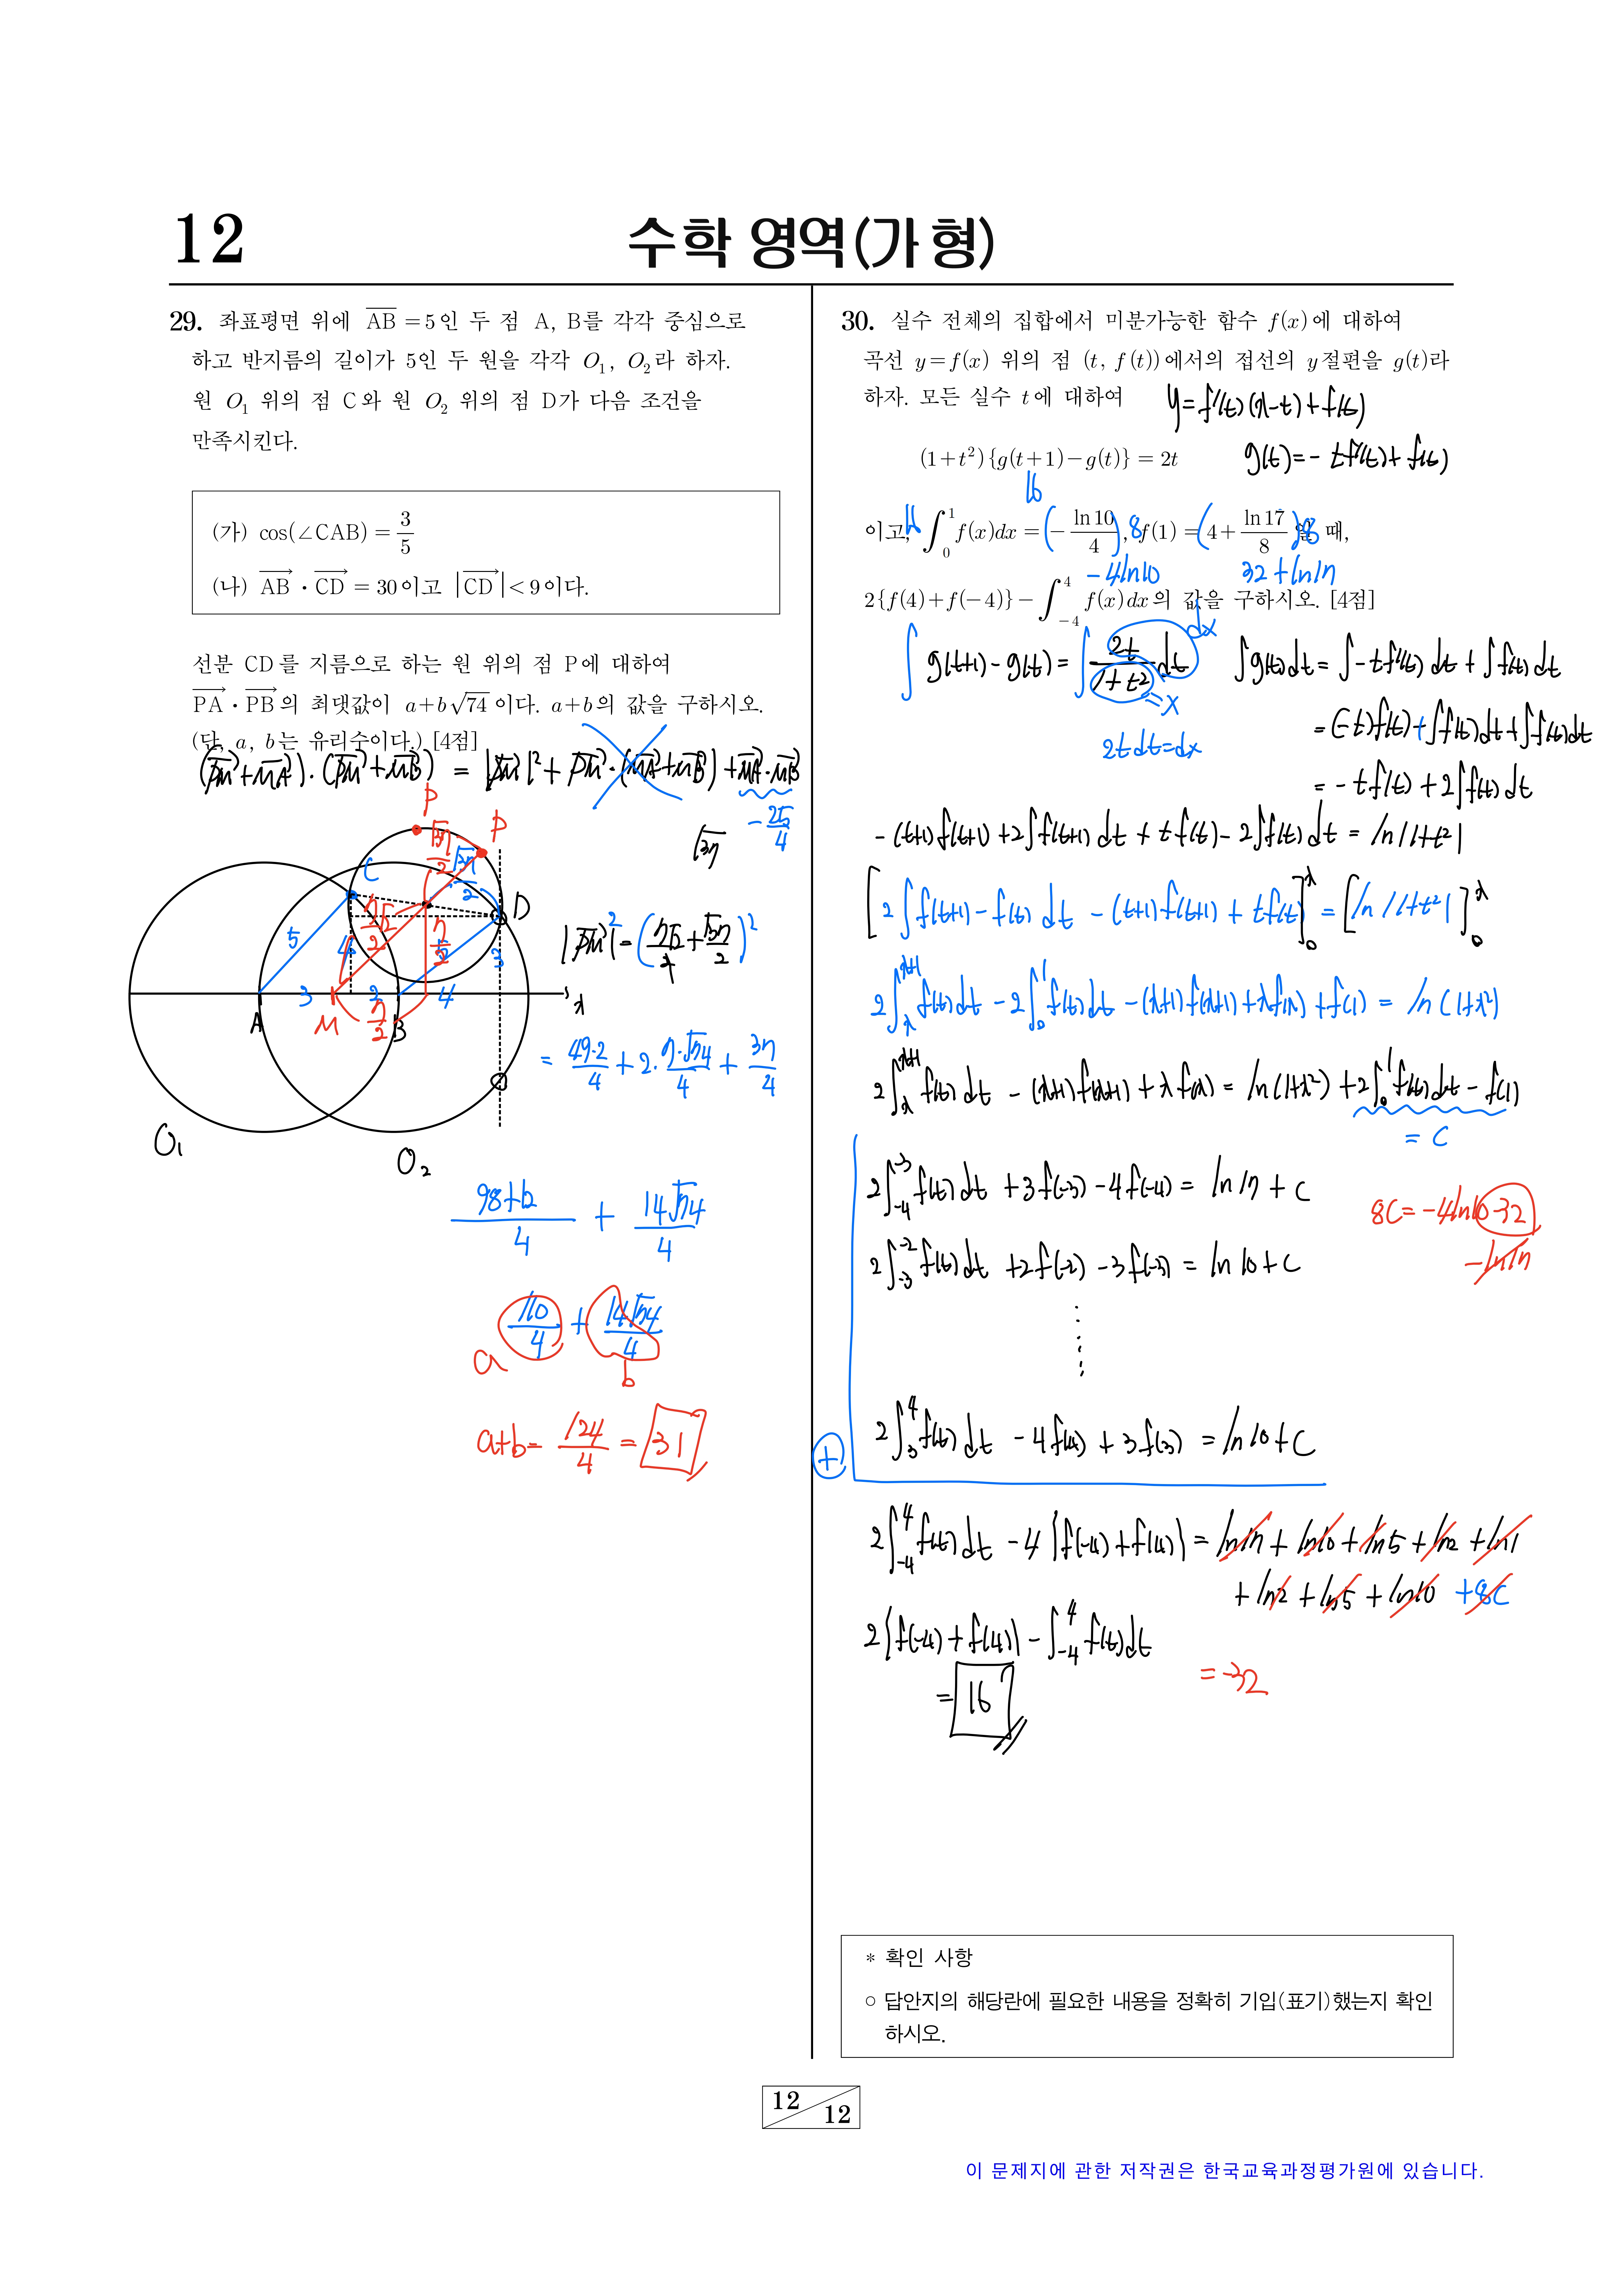 12
수학 영역(가 형)
29. 좌표평면 위에 AB = 5인 두 점 A, B를 각각 중심으로
하고 반지름의 길이가 5인 두 원을 각각 O₁, O₂라 하자.
원 O₁ 위의 점 C와 원 O₂ 위의 점 D가 다음 조건을
만족시킨다.
(가) cos(∠CAB) = 3/5
(나) AB · CD = 30이고 |CD| < 9이다.
선분 CD를 지름으로 하는 원 위의 점 P에 대하여
PA · PB의 최댓값이 a+b√74 이다. a+b의 값을 구하시오.
(단, a, b는 유리수이다.) [4점]
(PM+MA)·(PM+MB) = |PM|²+ PM·(MA+MB)+MA·MB
-25/4
P
P
√37
C
D
5
4
3
2
4
3
A
M
B
x
O₁
O₂
|PM|²=(7√2/2+√37/2)²
= 49·2/4 + 2·7·√74/4 + 37/4
98+12/4 + 14√74/4
110/4 + 14√74/4
a
b
a+b= 124/4 = 31
30. 실수 전체의 집합에서 미분가능한 함수 f(x)에 대하여
곡선 y=f(x) 위의 점 (t, f(t))에서의 접선의 y절편을 g(t)라
하자. 모든 실수 t에 대하여
y=f'(t)(x-t)+f(t)
(1+t²){g(t+1)-g(t)} = 2t
g(t)=-tf'(t)+f(t)
16
이고, ∫₀¹ f(x)dx = -ln10/4, f(1) = 4+ln17/8 일 때,
-4ln10
32+ln17
2{f(4)+f(-4)}-∫₋₄⁴ f(x)dx의 값을 구하시오. [4점]
∫g(t+1)-g(t)=∫2t/1+t² dt
dx
=x
2tdt=dx
∫g(t)dt=∫-tf'(t)dt+∫f(t)dt
=(-t)f(t)+∫f(t)dt+∫f(t)dt
=-tf(t)+2∫f(t)dt
-(t+1)f(t+1)+2∫f(t+1)dt+tf(t)-2∫f(t)dt = ln|1+t²|
[2∫f(t+1)-f(t)dt -(t+1)f(t+1)+tf(t)]₀ˣ = [ln|1+t²|]₀ˣ
2∫ₓˣ⁺¹f(t)dt-2∫₀¹f(t)dt-(x+1)f(x+1)+xf(x)+f(1) = ln(1+x²)
2∫ₓˣ⁺¹f(t)dt-(x+1)f(x+1)+xf(x)=ln(1+x²)+2∫₀¹f(t)dt-f(1)
= C
2∫₋₄⁻³f(t)dt+3f(-3)-4f(-4)=ln17+C
8C=-4ln10-32
-ln17
2∫₋₃⁻²f(t)dt+2f(-2)-3f(-3)=ln10+C
2∫₃⁴f(t)dt-4f(4)+3f(3)=ln10+C
+
2∫₋₄⁴f(t)dt-4{f(-4)+f(4)}=ln17+ln10+ln5+ln2+ln1
+ln2+ln5+ln10 +8C
2{f(-4)+f(4)}-∫₋₄⁴f(t)dt
=-32
= 16
* 확인 사항
○ 답안지의 해당란에 필요한 내용을 정확히 기입(표기)했는지 확인
하시오.
12
12
이 문제지에 관한 저작권은 한국교육과정평가원에 있습니다.